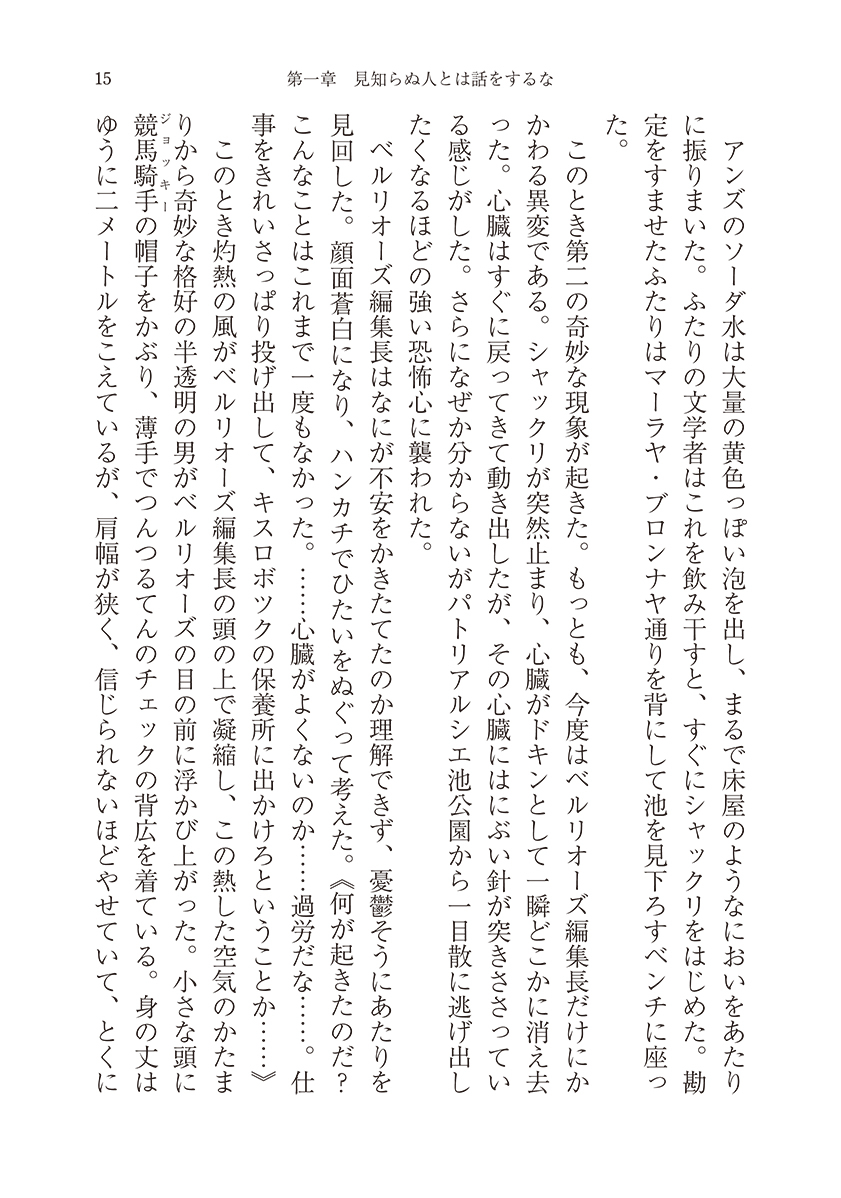 15
第一章　見知らぬ人とは話をするな
　アンズのソーダ水は大量の黄色っぽい泡を出し、まるで床屋のようなにおいをあたり
に振りまいた。ふたりの文学者はこれを飲み干すと、すぐにシャックリをはじめた。勘
定をすませたふたりはマーラヤ・ブロンナヤ通りを背にして池を見下ろすベンチに座っ
た。
　このとき第二の奇妙な現象が起きた。もっとも、今度はベルリオーズ編集長だけにか
かわる異変である。シャックリが突然止まり、心臓がドキンとして一瞬どこかに消え去
った。心臓はすぐに戻ってきて動き出したが、その心臓にはにぶい針が突きささってい
る感じがした。さらになぜか分からないがパトリアルシエ池公園から一目散に逃げ出し
たくなるほどの強い恐怖心に襲われた。
　ベルリオーズ編集長はなにが不安をかきたてたのか理解できず、憂鬱そうにあたりを
見回した。顔面蒼白になり、ハンカチでひたいをぬぐって考えた。《何が起きたのだ？
こんなことはこれまで一度もなかった。……心臓がよくないのか……過労だな……。仕
事をきれいさっぱり投げ出して、キスロボツクの保養所に出かけろということか……》
　このとき灼熱の風がベルリオーズ編集長の頭の上で凝縮し、この熱した空気のかたま
りから奇妙な格好の半透明の男がベルリオーズの目の前に浮かび上がった。小さな頭に
ジョッキー
競馬騎手の帽子をかぶり、薄手でつんつるてんのチェックの背広を着ている。身の丈は
ゆうに二メートルをこえているが、肩幅が狭く、信じられないほどやせていて、とくに